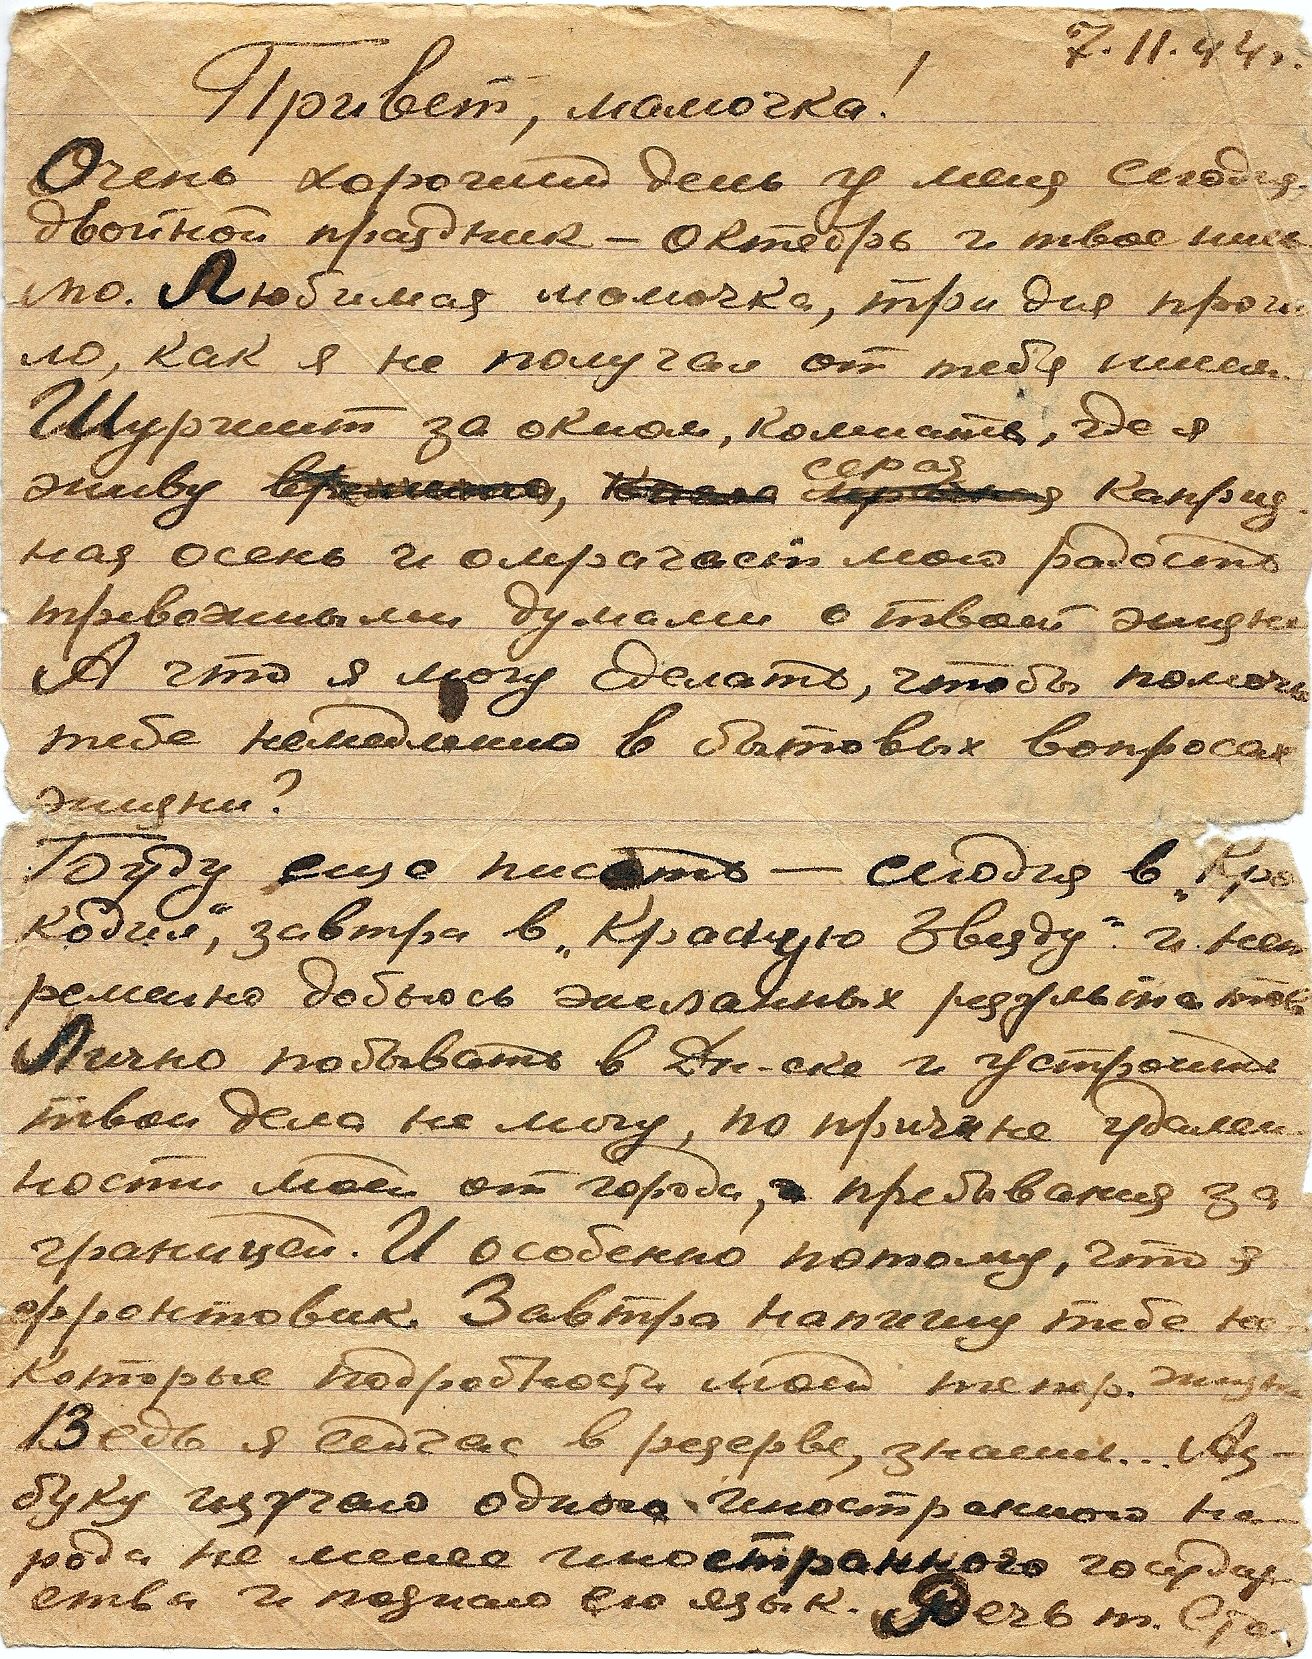 7.11.44г.
Привет, мамочка!
Очень хороший день у меня сегодня,
двойной праздник – октябрь и твое пись
мо. Любимая мамочка, три дня прош
ло, как я не получал от тебя писем.
Шуршит за окном, комнаты, где я
живу серая каприз
ная осень и омрачает мою радость
тревожными думами о твоей жизни
А что я могу сделать, чтобы помочь
тебе немедленно в бытовых вопросах
жизни?
Буду еще писать — сегодня в „Кро
кодил“, завтра в „Красную Звезду“ и неп
ременно добьюсь желанных результатов
Лично побывать в Дн-ске и устроить
твои дела не могу, по причине удален
ности моей от города, пребывания за
границей. И особенно потому, что я
фронтовик. Завтра напишу тебе не
которые подробности моей тепер. жизни
Ведь я сейчас в резерве, знаешь... Аз-
буку изучаю одного иностранного на
рода не менее иностранного государ
ства и познаю его язык. Речь т. Ста